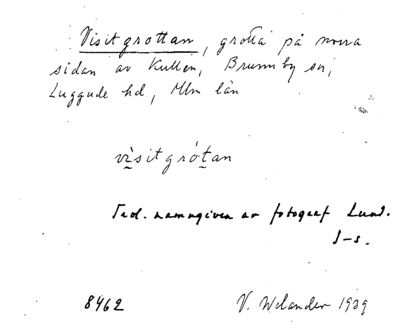 Visitgrottan, grotta på norra
sidan av Kullen, Brunnby sn,
Luggude hd, Mlm län
vìsitgró̱tan
Tad. namngiven av fotograf Lund.
I-s.
8462 V. Welander 1939